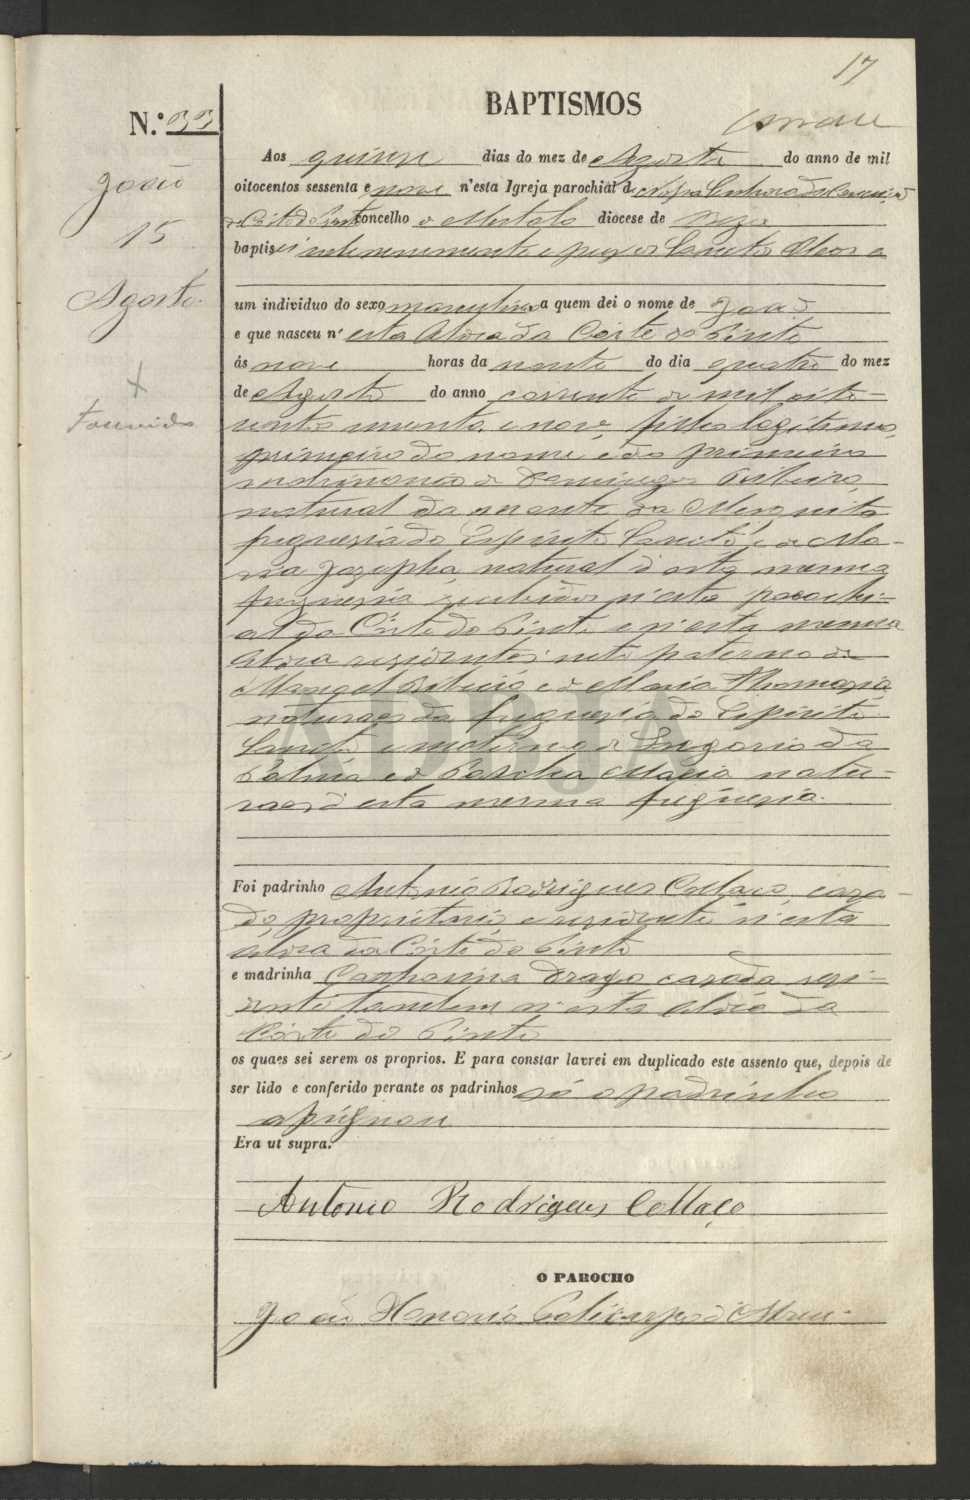 17
BAPTISMOS
N.º 33
João
15
Agosto
Aos quinze dias do mez de Agosto do anno de mil
oitocentos sessenta e nove n'esta Igreja parochial de Nossa Senhora da Conceição
da Corte do Pinto concelho de Mertola diocese de Beja
baptisei solemnemente e puz os Sanctos Oleos a
um individuo do sexo masculino a quem dei o nome de João
e que nasceu n'esta Aldea da Corte do Pinto
ás nove horas da noute do dia quatro do mez
de Agosto do anno corrente de mil oito-
centos sessenta e nove, filho legitimo,
primeiro do nome e do primeiro
matrimonio de Domingos Ribeiro,
natural do monte da Mesquita
freguesia do Espirito Sancto, e de Ma-
ria Josepha, natural d'esta mesma
freguesia recebidos n'esta parochi-
al da Corte do Pinto e n'esta mesma
Aldea residentes; neto paterno de
Manoel Ribeiro e de Maria Thomasia
naturaes da freguesia do Espirito
Sancto e materno de da
Palma e de Maria natu-
raes d'esta mesma freguesia.
ADBJA
Foi padrinho Antonio Rodrigues Collaço, casa-
do, proprietario, e residente n'esta
aldea da Corte do Pinto
e madrinha Catharina Drago casada resi-
dente tambem n'esta aldea da
Corte do Pinto
os quaes sei serem os proprios. E para constar lavrei em duplicado este assento que, depois de
ser lido e conferido perante os padrinhos só o padrinho
assignou
Era ut supra.
Antonio Rodrigues Collaço
O PAROCHO
João